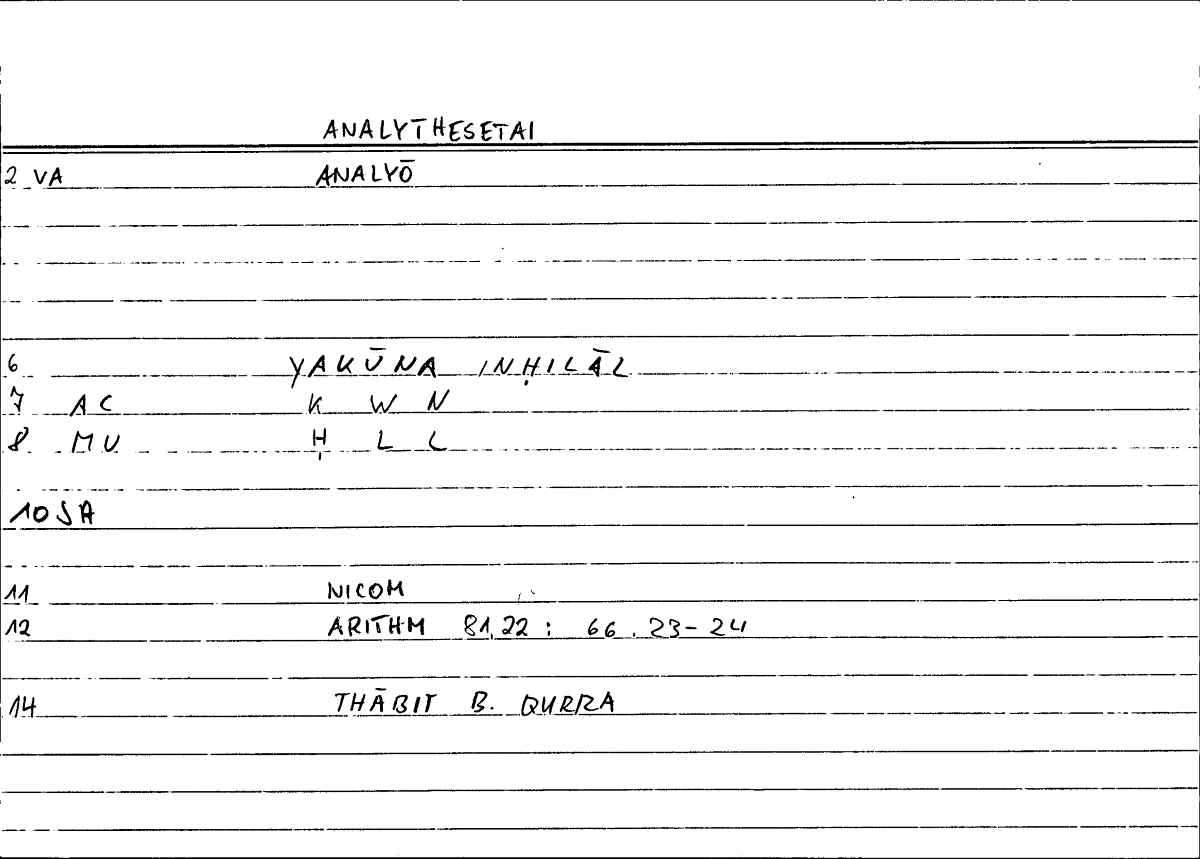 ANALYT̄HESETAI
2 VA ANALYŌ
6 YAKŪNA INḤILĀL
7 AC K W N
8 MU Ḥ L L
10 SA
11 NICOM
12 ARITHM 81,22 : 66.23-24
14 THĀBIT B. QURRA